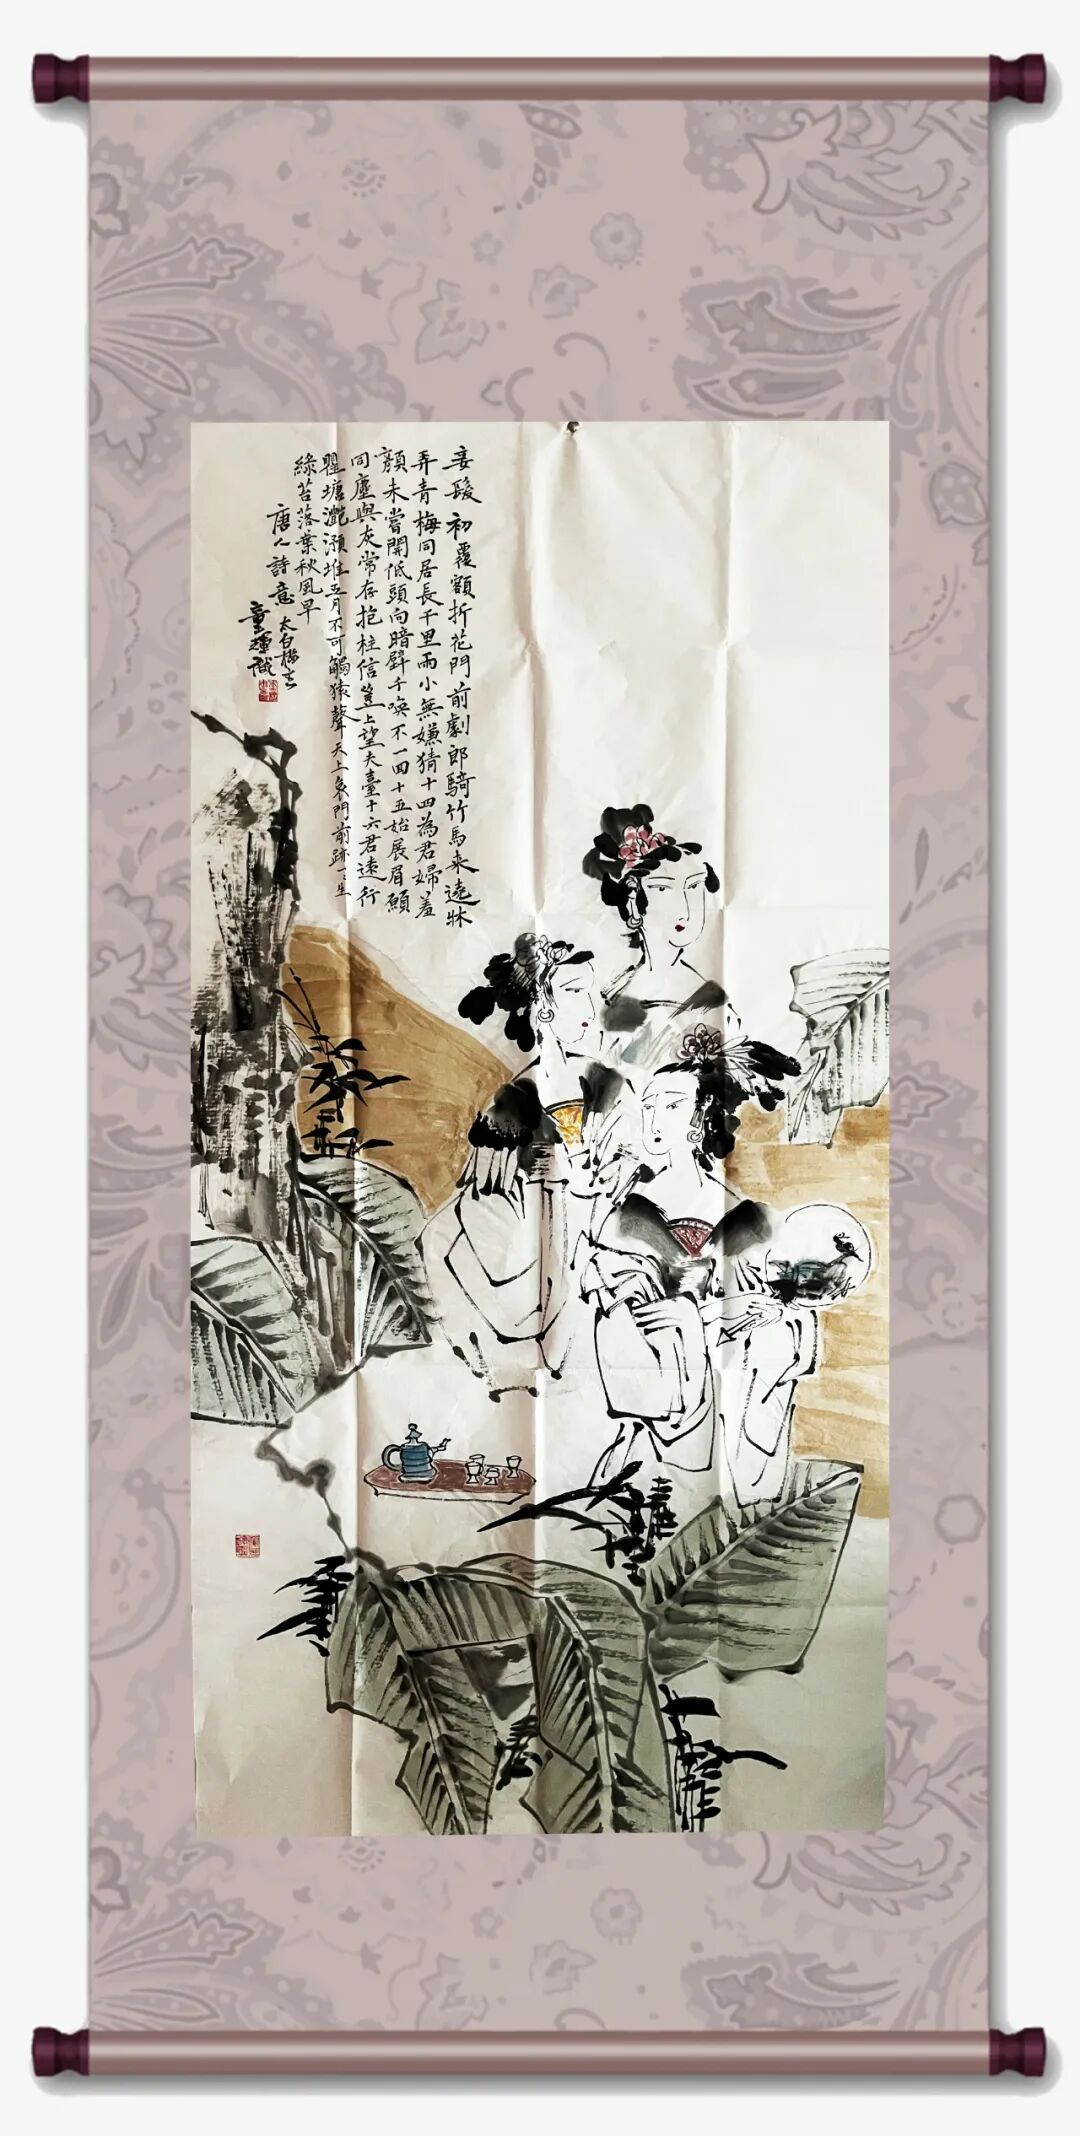 妾髮初覆額折花門前劇郎騎竹馬來遶牀
弄青梅同居長千里兩小無嫌猜十四為君婦羞
顏未嘗開低頭向暗壁千喚不一回十五始展眉願
同塵與灰常存抱柱信豈上望夫臺十六君遠行
瞿塘灩澦堆五月不可觸猿聲天上哀門前跡一生
綠苔落葉秋風早
唐人詩意
太白
童輝識